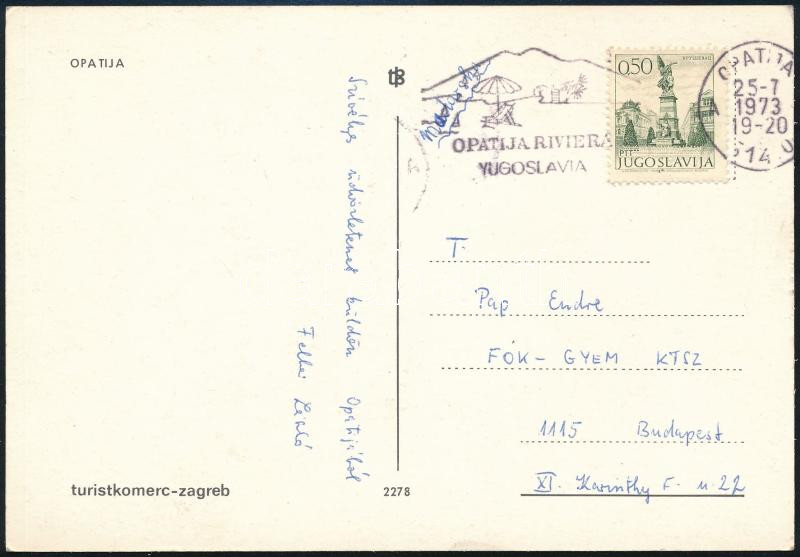 OPATIJA
Szivélyes üdvözletemet küldöm Opatijából
László
turistkomerc-zagreb
2278
OPATIJA RIVIERA
YUGOSLAVIA
0,50
КРУШЕВАЦ
PTT
JUGOSLAVIJA
OPATIJA
25-7
1973
19-20
14
T.
Pap Endre
FŐK-GYEM KTSZ
1115 Budapest
XI. Karinthy F. u 22